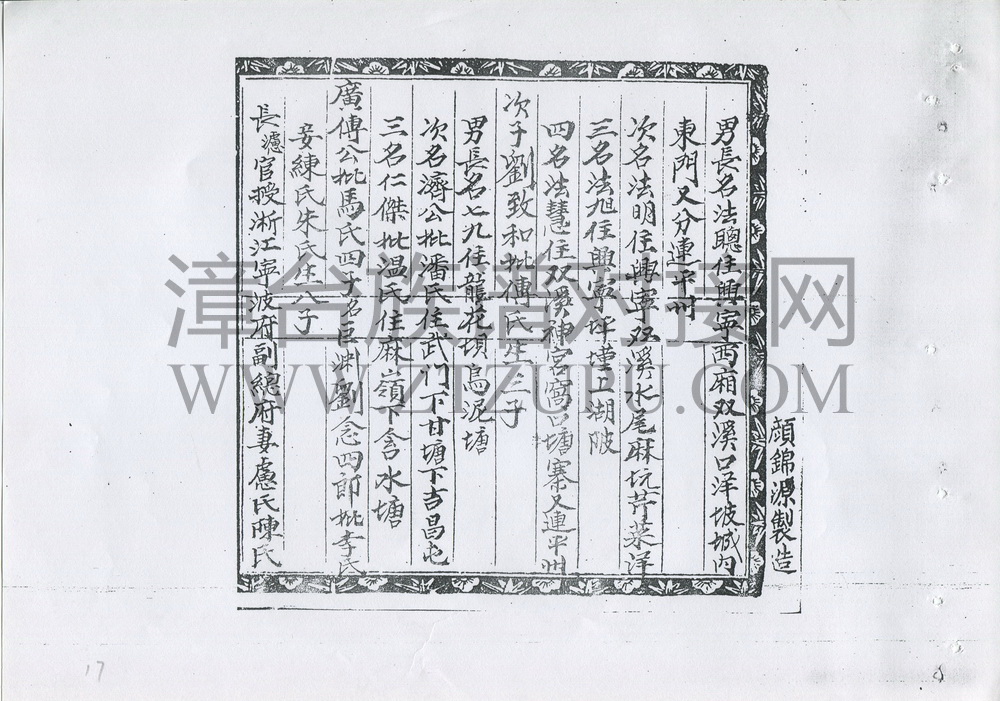 男長名法聰住興寧西廂双溪口洋坡城内
東門又分連平州
次名法明住興寧双溪水尾麻坑芹菜洋
三名法旭住興寧坪塘工湖陂
四名法慧住双溪神宮窩口塘寨又連平州
次子劉致和妣傅氏生三子
男長名七九住龍花埧烏泥塘
次名濟公妣潘氏住武门下甘塘下吉昌屯
三名仁傑妣温氏住麻嶺下含水塘
廣傅公妣馬氏四子名巨渊劉念四郎妣李氏
妾練氏朱氏生八子
長濾官授淅江寧波府副總府妻盧氏陳氏
顔錦源製造
漳台族谱对接网
WWW.ZTZUPU.COM
17